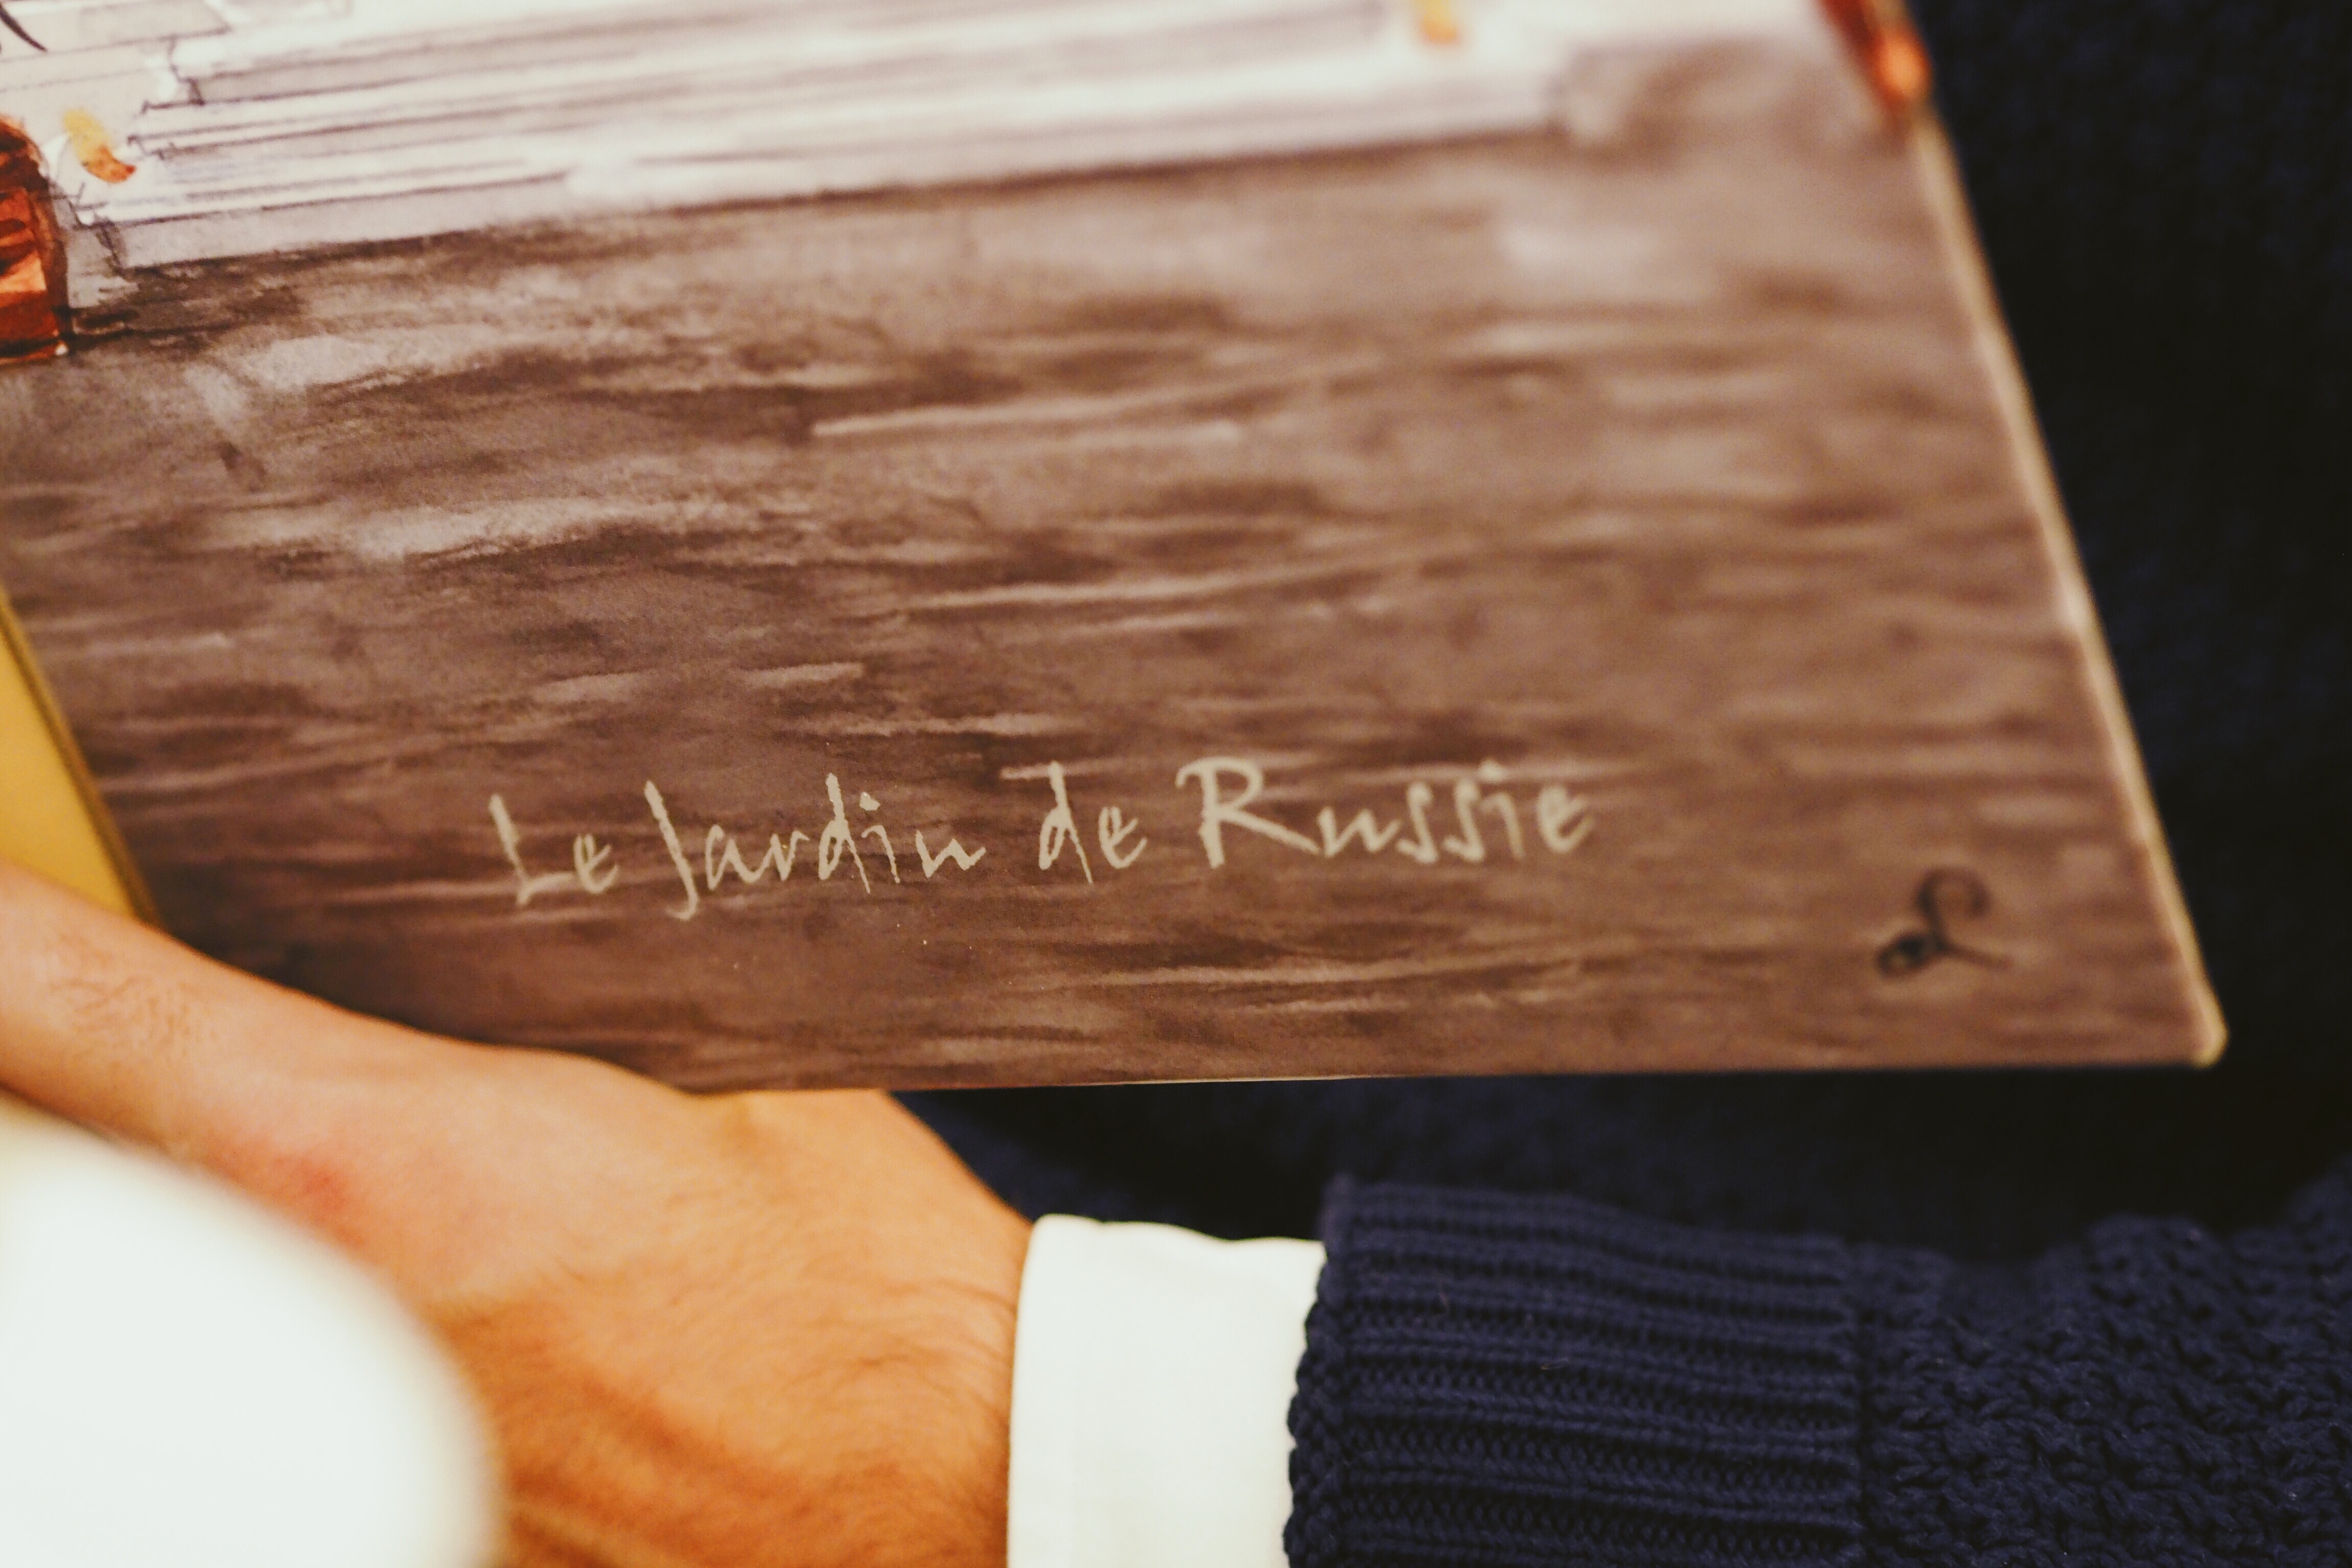 Le Jardin de Russie